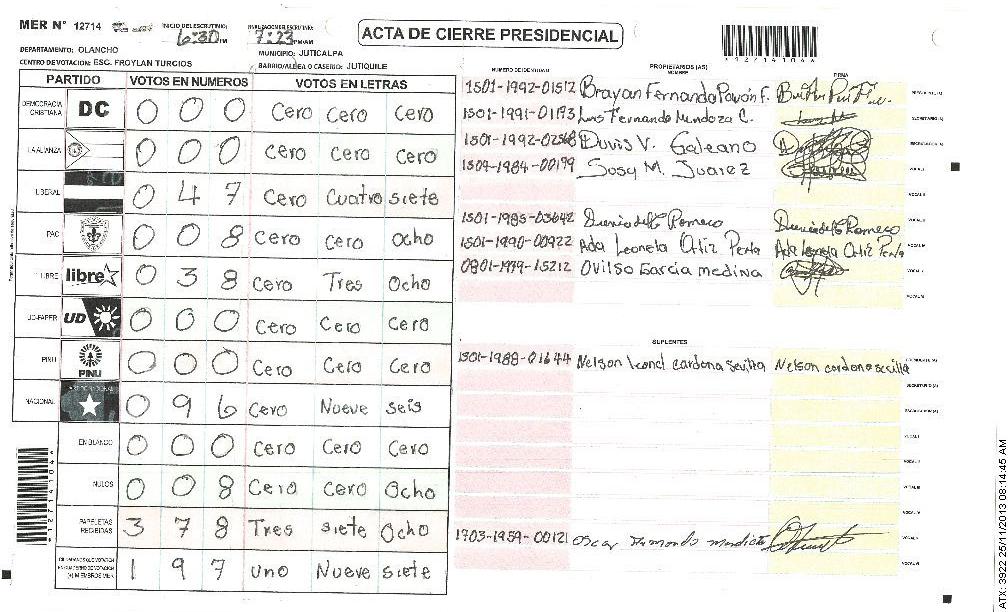 MER N° 12714
INICIO DEL ESCRUTINIO:
6:30 PM
FINALIZACION ESCRUTINIO:
7:23 PM/AM
ACTA DE CIERRE PRESIDENCIAL
*12714104*
DEPARTAMENTO: OLANCHO
MUNICIPIO: JUTICALPA
CENTRO DE VOTACION: ESC. FROYLAN TURCIOS
BARRIO/ALDEA O CASERIO: JUTIQUILE
PARTIDO VOTOS EN NUMEROS VOTOS EN LETRAS
DEMOCRACIA CRISTIANA DC 0 0 0 Cero Cero Cero
LA ALIANZA 0 0 0 Cero Cero Cero
LIBERAL 0 4 7 Cero Cuatro siete
PAC 0 0 8 Cero Cero Ocho
LIBRE libre 0 3 8 Cero Tres Ocho
UD-FAPER UD 0 0 0 Cero Cero Cero
PINU PINU 0 0 0 Cero Cero Cero
NACIONAL 0 9 6 Cero Nueve seis
EN BLANCO 0 0 0 Cero Cero Cero
NULOS 0 0 8 Cero Cero Ocho
PAPELETAS RECIBIDAS 3 7 8 Tres siete Ocho
MIEMBROS MER 1 9 7 uno Nueve siete
NUMERO DE IDENTIDAD
PROPIETARIOS (AS)
NOMBRE
FIRMA
1501-1992-01512 Brayan Fernando Pavón F.
1501-1991-01193 Luis Fernando Mendoza C.
1501-1992-02568 Duvis V. Galeano
1504-1984-00199 Sosy M. Juarez
1501-1985-03642 Romero Romero
1501-1990-00922 Ada Leonela Ortiz Ada Ortiz
0801-1979-15212 Ovilso García medina
SUPLENTES
1501-1988-01644 Nelson Leonel cardona Sevilla Nelson cardona sevilla
1703-1959-00121 Oscar
*12714104*
ATX: 3922 25/11/2013 08:14:45 AM